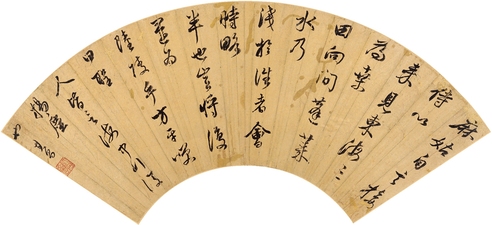 麻姑自言接
侍以
來見東海三
為桑
田向間蓬萊
水乃
淺於往者會
時略
半也豈將復
還為
陸陵乎方平笑
曰聖
人皆言海中行復
揚塵
也